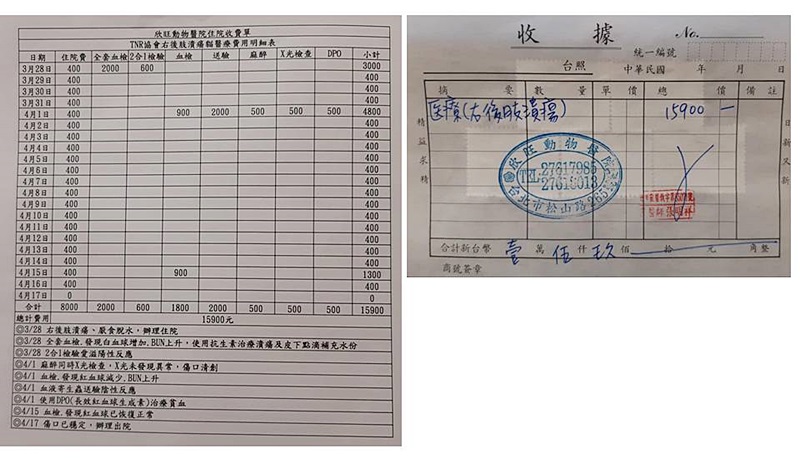 欣旺動物醫院住院收費單
TNR協會右後肢潰瘍貓醫療費用明細表
日期 住院費 全套血檢 2合1檢驗 血檢 送驗 麻醉 X光檢查 DPO 小計
3月28日 400 2000 600 3000
3月29日 400 400
3月30日 400 400
3月31日 400 400
4月1日 400 900 2000 500 500 500 4800
4月2日 400 400
4月3日 400 400
4月4日 400 400
4月5日 400 400
4月6日 400 400
4月7日 400 400
4月8日 400 400
4月9日 400 400
4月10日 400 400
4月11日 400 400
4月12日 400 400
4月13日 400 400
4月14日 400 400
4月15日 400 900 1300
4月16日 400 400
4月17日 0 0
合計 8000 2000 600 1800 2000 500 500 500 15900
總計費用 15900元
◎3/28 右後肢潰瘍、厭食脫水，辦理住院
◎3/28 全套血檢.發現白血球增加.BUN上升，使用抗生素治療潰瘍及皮下點滴補充水份
◎3/28 2合1檢驗愛滋陽性反應
◎4/1 麻醉同時X光檢查，X光未發現異常，傷口清創
◎4/1 血檢.發現紅血球減少.BUN上升
◎4/1 血液寄生蟲送驗陰性反應
◎4/1 使用DPO(長效紅血球生成素)治療貧血
◎4/15 血檢.發現紅血球已恢復正常
◎4/17 傷口已穩定，辦理出院
收據 No.
統一編號
台照 中華民國 年 月 日
摘要 數量 單價 總價 備註
医療(右後肢潰瘍) 15900 一
精益求精
日新又新
欣旺動物醫院
TEL:27617985
台北市松山路
合計新台幣 壹萬伍仟玖佰拾元角整
商號簽章